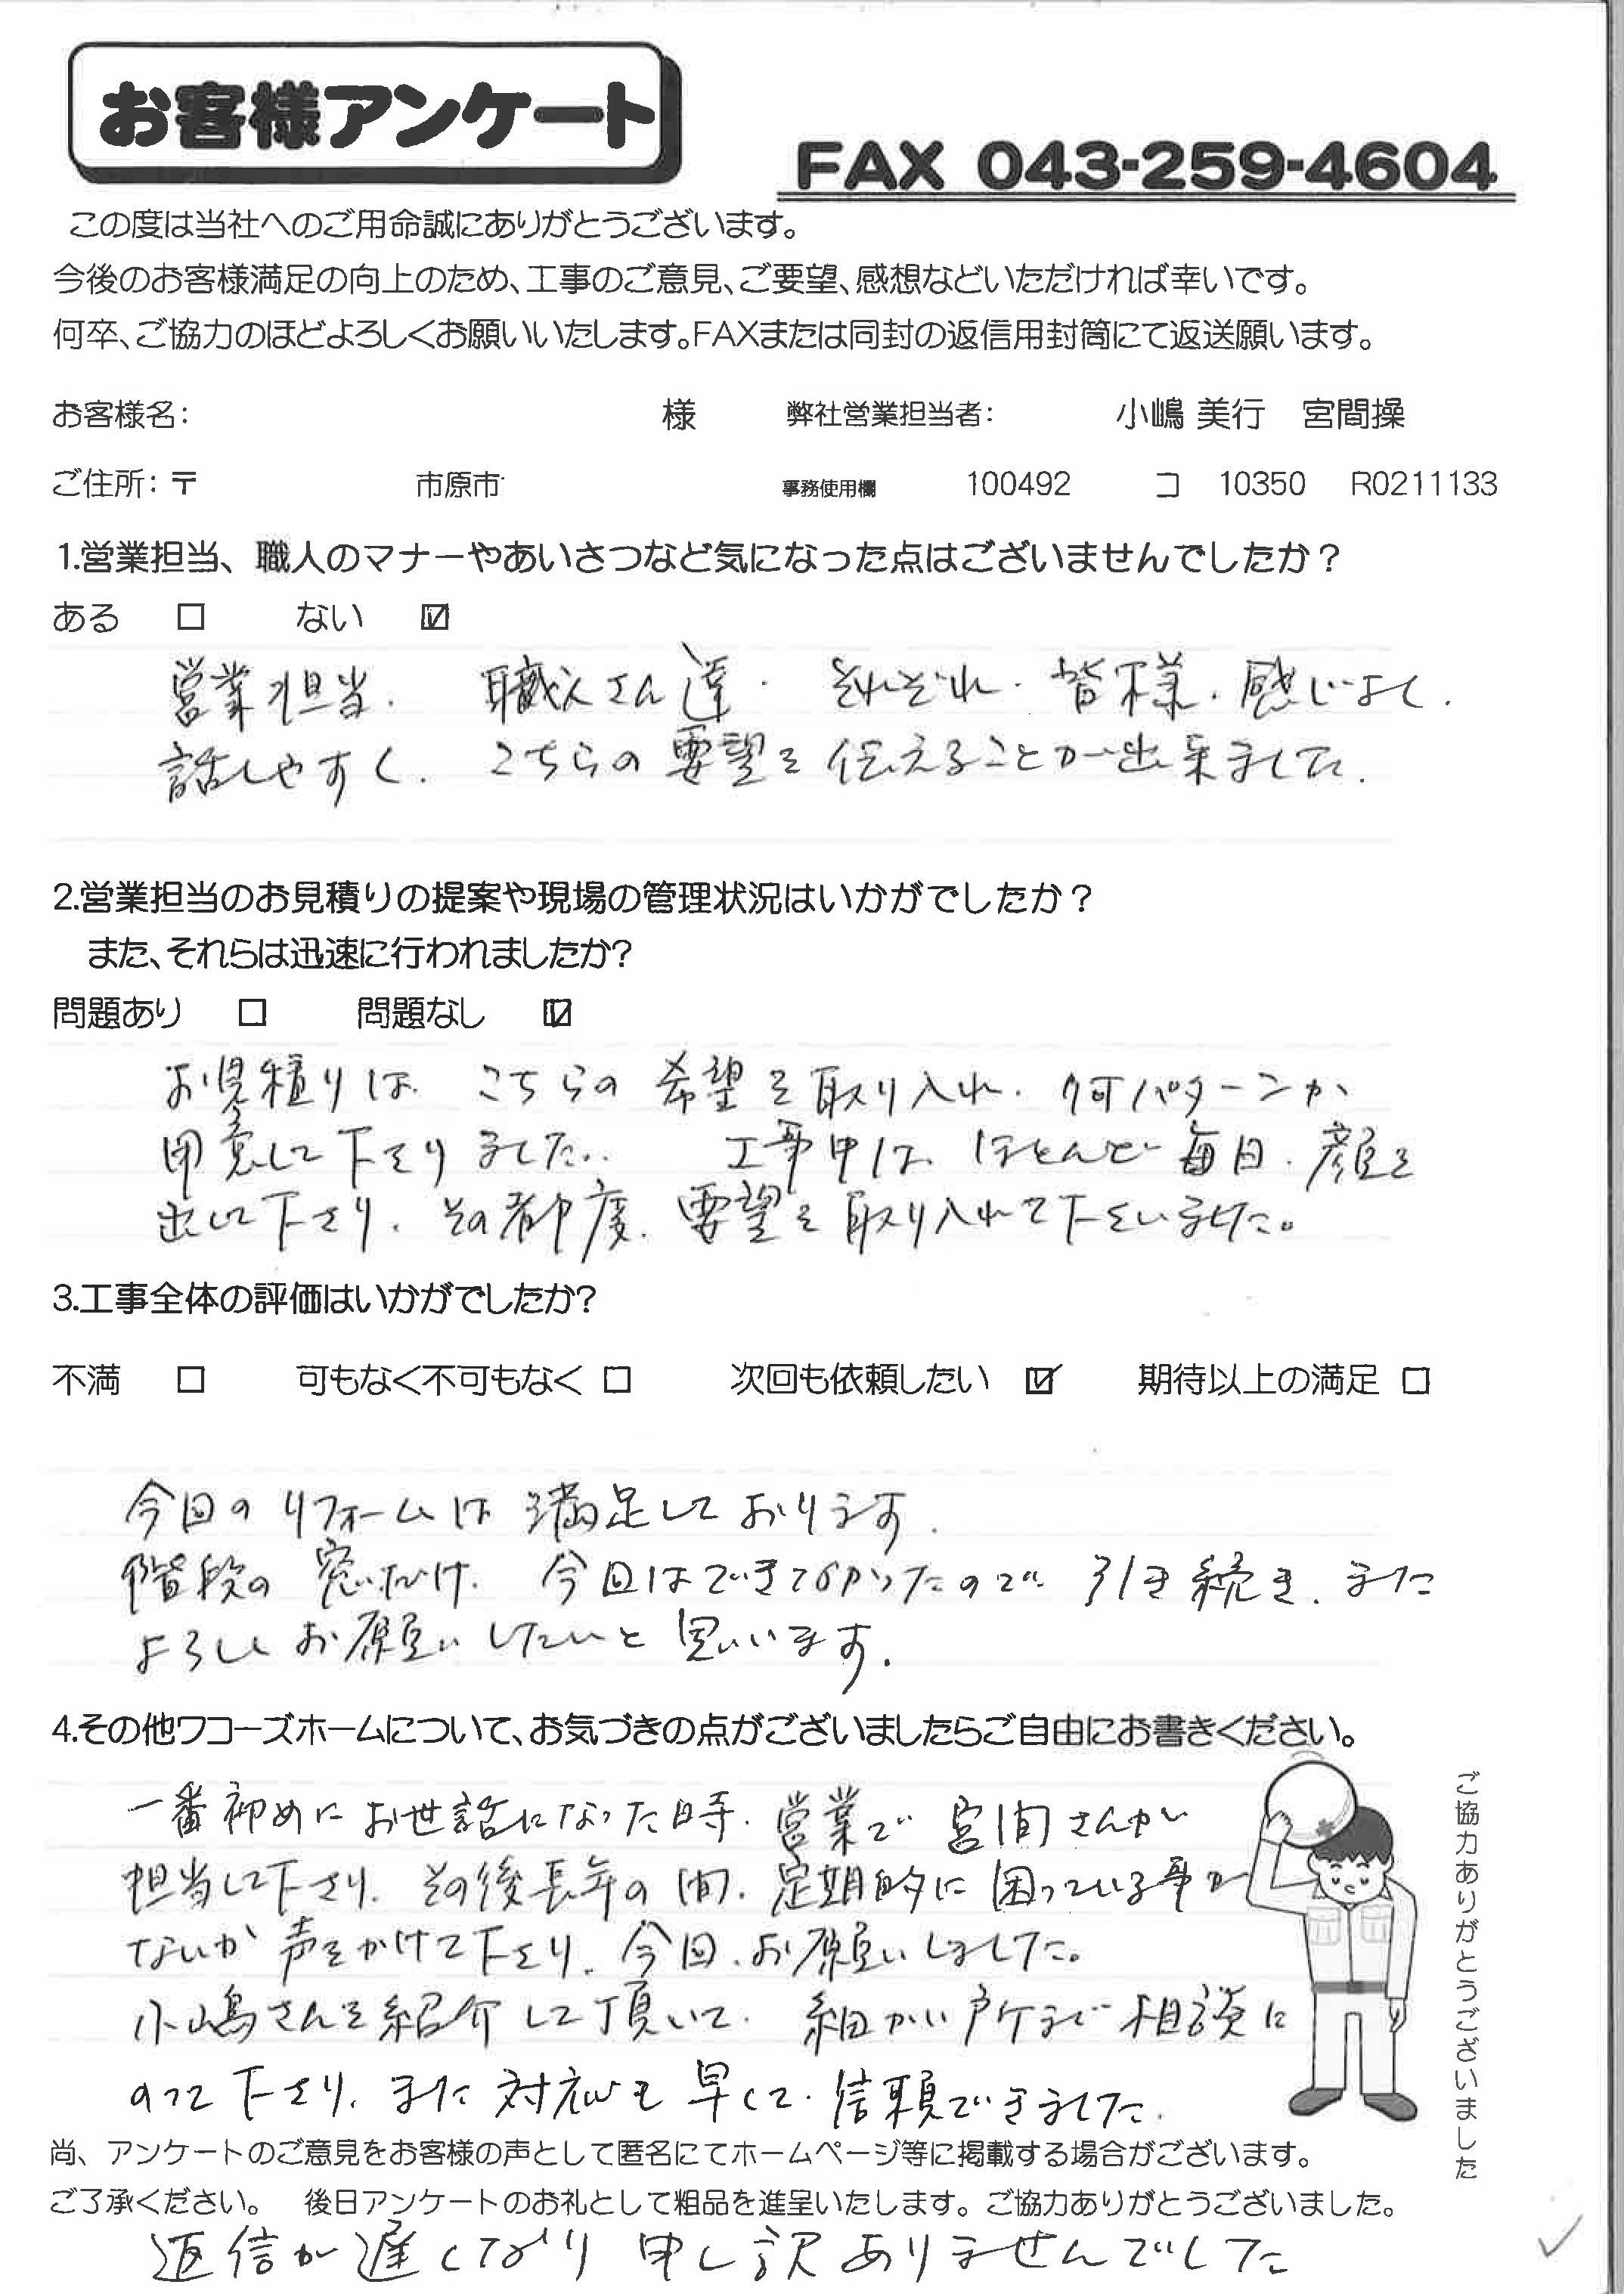 お客様アンケート
FAX 043-259-4604
この度は当社へのご用命誠にありがとうございます。
今後のお客様満足の向上のため、工事のご意見、ご要望、感想などいただければ幸いです。
何卒、ご協力のほどよろしくお願いいたします。FAXまたは同封の返信用封筒にて返送願います。
お客様名： 様 弊社営業担当者： 小嶋 美行 宮間操
ご住所：〒 市原市 事務使用欄 100492 コ 10350 R0211133
1.営業担当、職人のマナーやあいさつなど気になった点はございませんでしたか？
ある □ ない ☑
営業担当、職人さん達、それぞれ、皆様、感じよく、
話しやすく、こちらの要望を伝えることが出来ました。
2.営業担当のお見積りの提案や現場の管理状況はいかがでしたか？
また、それらは迅速に行われましたか？
問題あり □ 問題なし ☑
お見積りは、こちらの希望を取り入れ、何パターンか
用意して下さりました。 工事中は、ほとんど毎日、顔を
出して下さり、その都度、要望を取り入れて下さいました。
3.工事全体の評価はいかがでしたか？
不満 □ 可もなく不可もなく □ 次回も依頼したい ☑ 期待以上の満足 □
今回のリフォームは満足しております。
階段の窓だけ、今回はできてなかったので、引き続き、また
よろしくお願いしたいと思います。
4.その他ワコーズホームについて、お気づきの点がございましたらご自由にお書きください。
一番初めにお世話になった時、営業で宮間さんが
担当して下さり、その後長年の間、定期的に困っている事が
ないか声をかけて下さり、今回、お願いしました。
小嶋さんを紹介して頂いて、細かい所まで相談に
のって下さり、また対応も早くて、信頼できました。
ご協力ありがとうございました
尚、アンケートのご意見をお客様の声として匿名にてホームページ等に掲載する場合がございます。
ご了承ください。 後日アンケートのお礼として粗品を進呈いたします。ご協力ありがとうございました。
返信が遅くなり申し訳ありませんでした